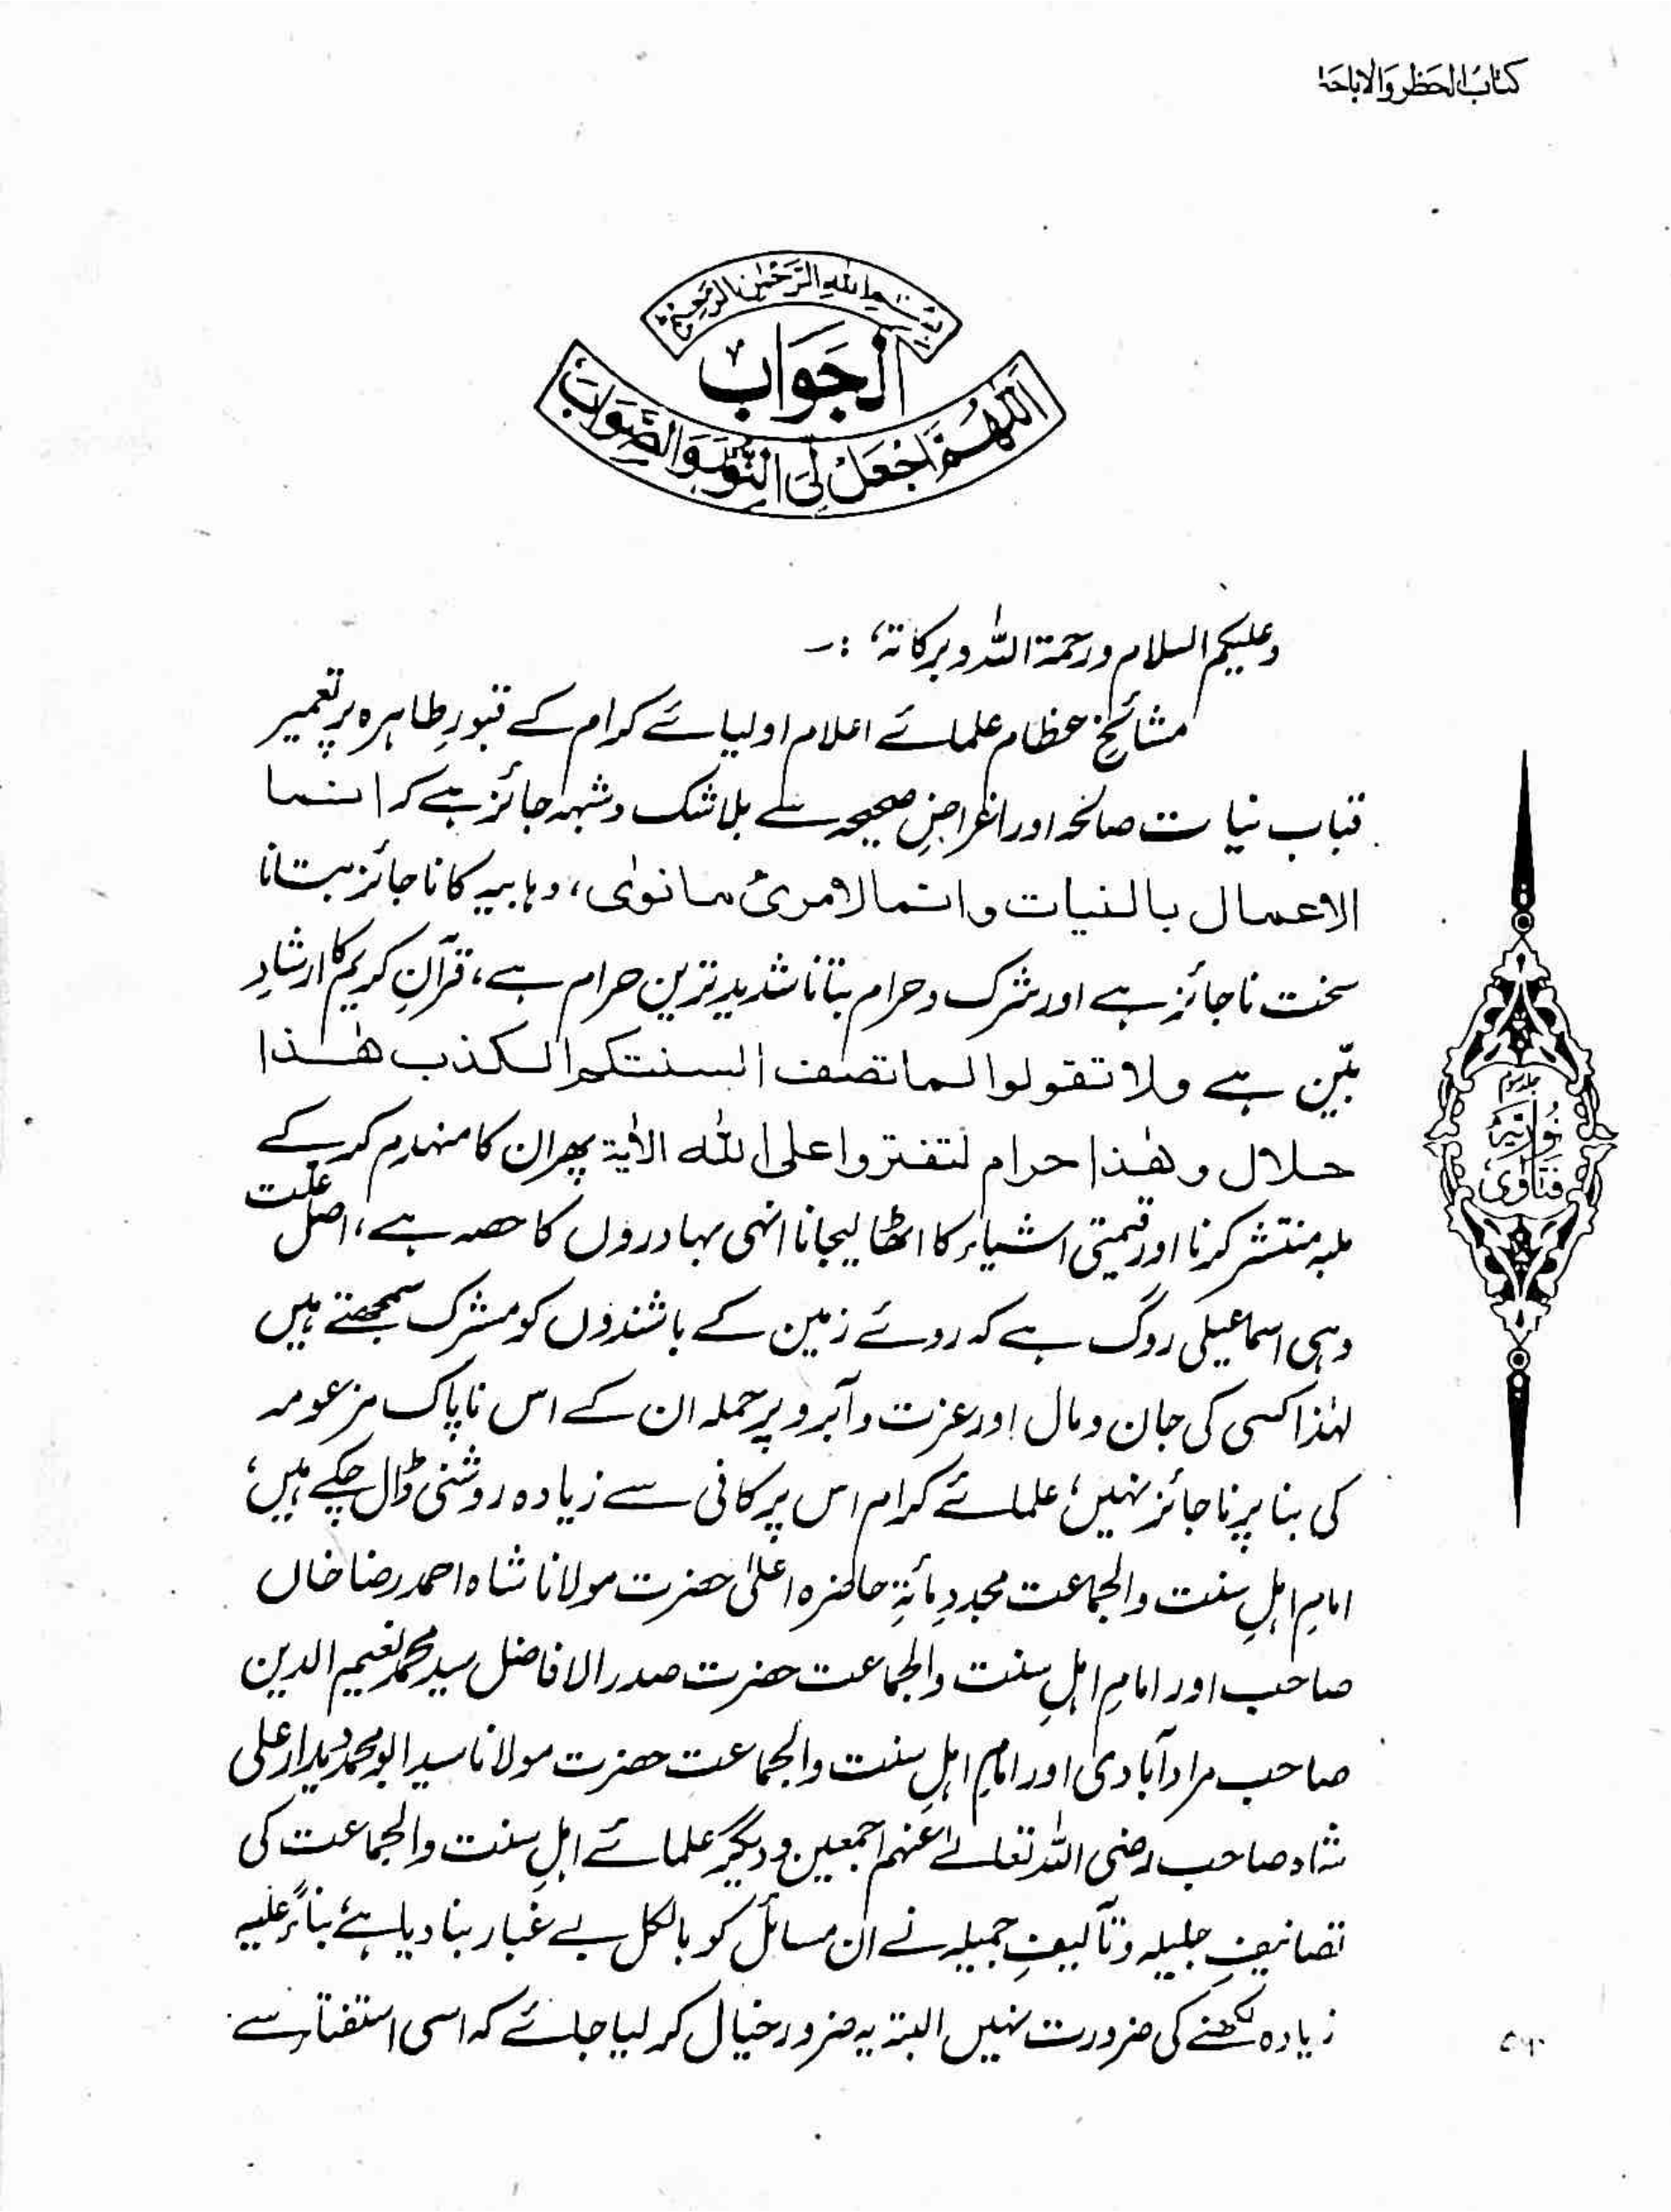 کتاب الحظر والاباحۃ
بسم اللہ الرحمٰن الرحیم
الجواب
اللھم اجعل لی النور والصواب
وعلیکم السلام ورحمۃ اللہ وبرکاتہ، :-
مشائخِ عظام علمائے اعلام اولیائے کرام کے قبورِ طاہرہ پر تعمیر
قباب نیات صالحہ اور اغراضِ صحیحہ سے بلاشک وشبہہ جائز ہے کہ انما
الاعمال بالنیات وانما لامرئ ما نوٰی، وہابیہ کا ناجائز بتانا
سخت ناجائز ہے اور شرک وحرام بتانا شدید ترین حرام ہے، قرآنِ کریم کا ارشادِ
بیّن ہے ولا تقولوا لما تصف السنتکم الکذب ھٰذا
حلال وھٰذا حرام لتفتروا علی اللہ الاٰیۃ پھر ان کا منہدم کرکے
ملبہ منتشر کرنا اور قیمتی اشیاء کا اٹھا لیجانا انہی بہادروں کا حصہ ہے، اصل علت
وہی اسماعیلی روگ ہے کہ روئے زمین کے باشندوں کو مشرک سمجھتے ہیں
لہٰذا کسی کی جان ومال اور عزت وآبرو پر حملہ ان کے اس ناپاک مزعومہ
کی بنا پر ناجائز نہیں، علمائے کرام اس پر کافی سے زیادہ روشنی ڈال چکے ہیں،
امامِ اہلِ سنت والجماعت مجددِ مائۃِ حاضرہ اعلیٰ حضرت مولانا شاہ احمد رضا خاں
صاحب اور امامِ اہلِ سنت والجماعت حضرت صدرالافاضل سید محمد نعیم الدین
صاحب مرادآبادی اور امامِ اہلِ سنت والجماعت حضرت مولانا سید ابومحمد دیدار علی
شاہ صاحب رضی اللہ تعالےٰ عنہم اجمعین و دیگر علمائے اہلِ سنت والجماعت کی
تصانیفِ جلیلہ وتآلیفِ جمیلہ نے ان مسائل کو بالکل بے غبار بنا دیا ہے، بناءً علیہ
زیادہ لکھنے کی ضرورت نہیں البتہ یہ ضرور خیال کر لیا جائے کہ اسی استفتاء سے
جلد سوم
نوریہ
فتاوی